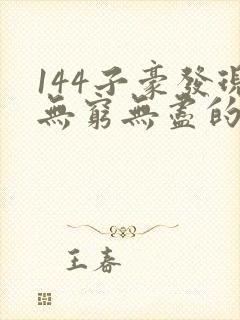 144子豪發現
無窮無盡的
王春